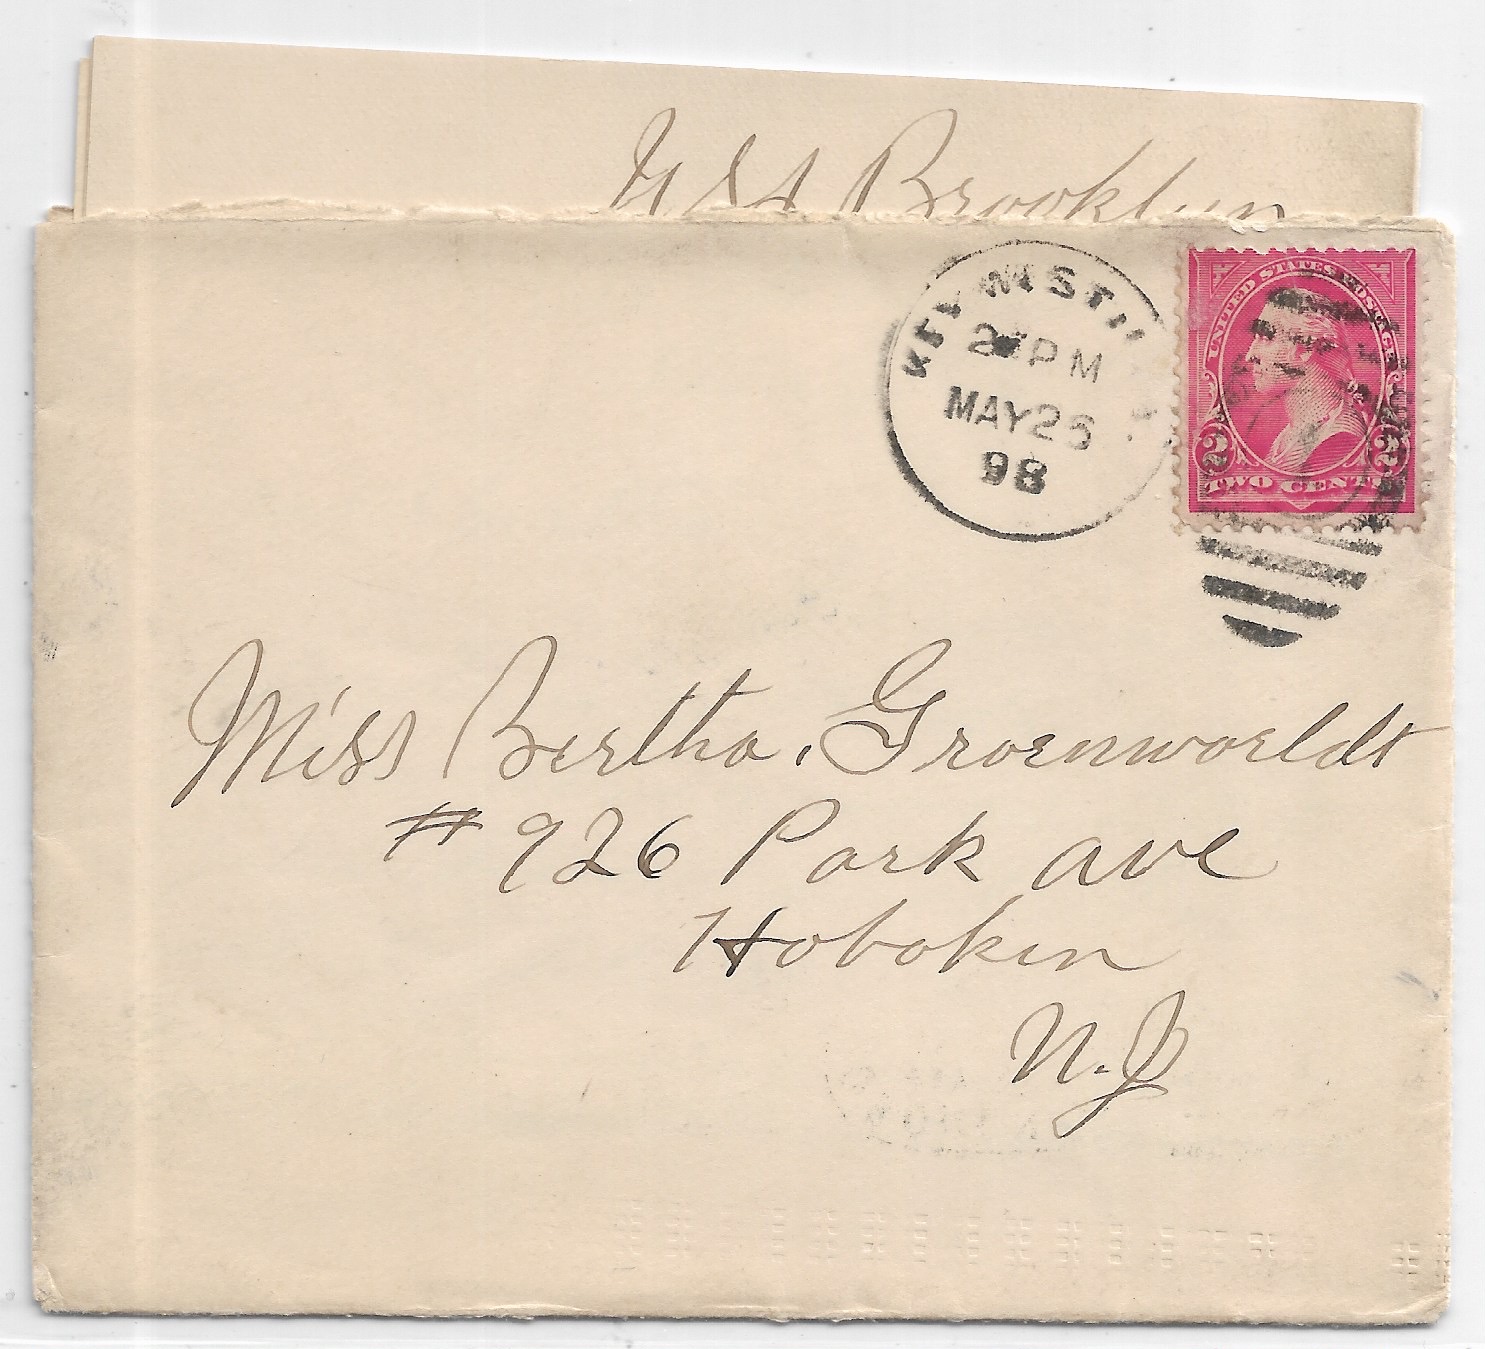 USS Brooklyn
KEY WEST
2 PM
MAY 26
98
UNITED STATES POSTAGE
2 2
TWO CENTS
Miss Bertha. Groenworldt
# 926 Park ave
Hoboken
N.J